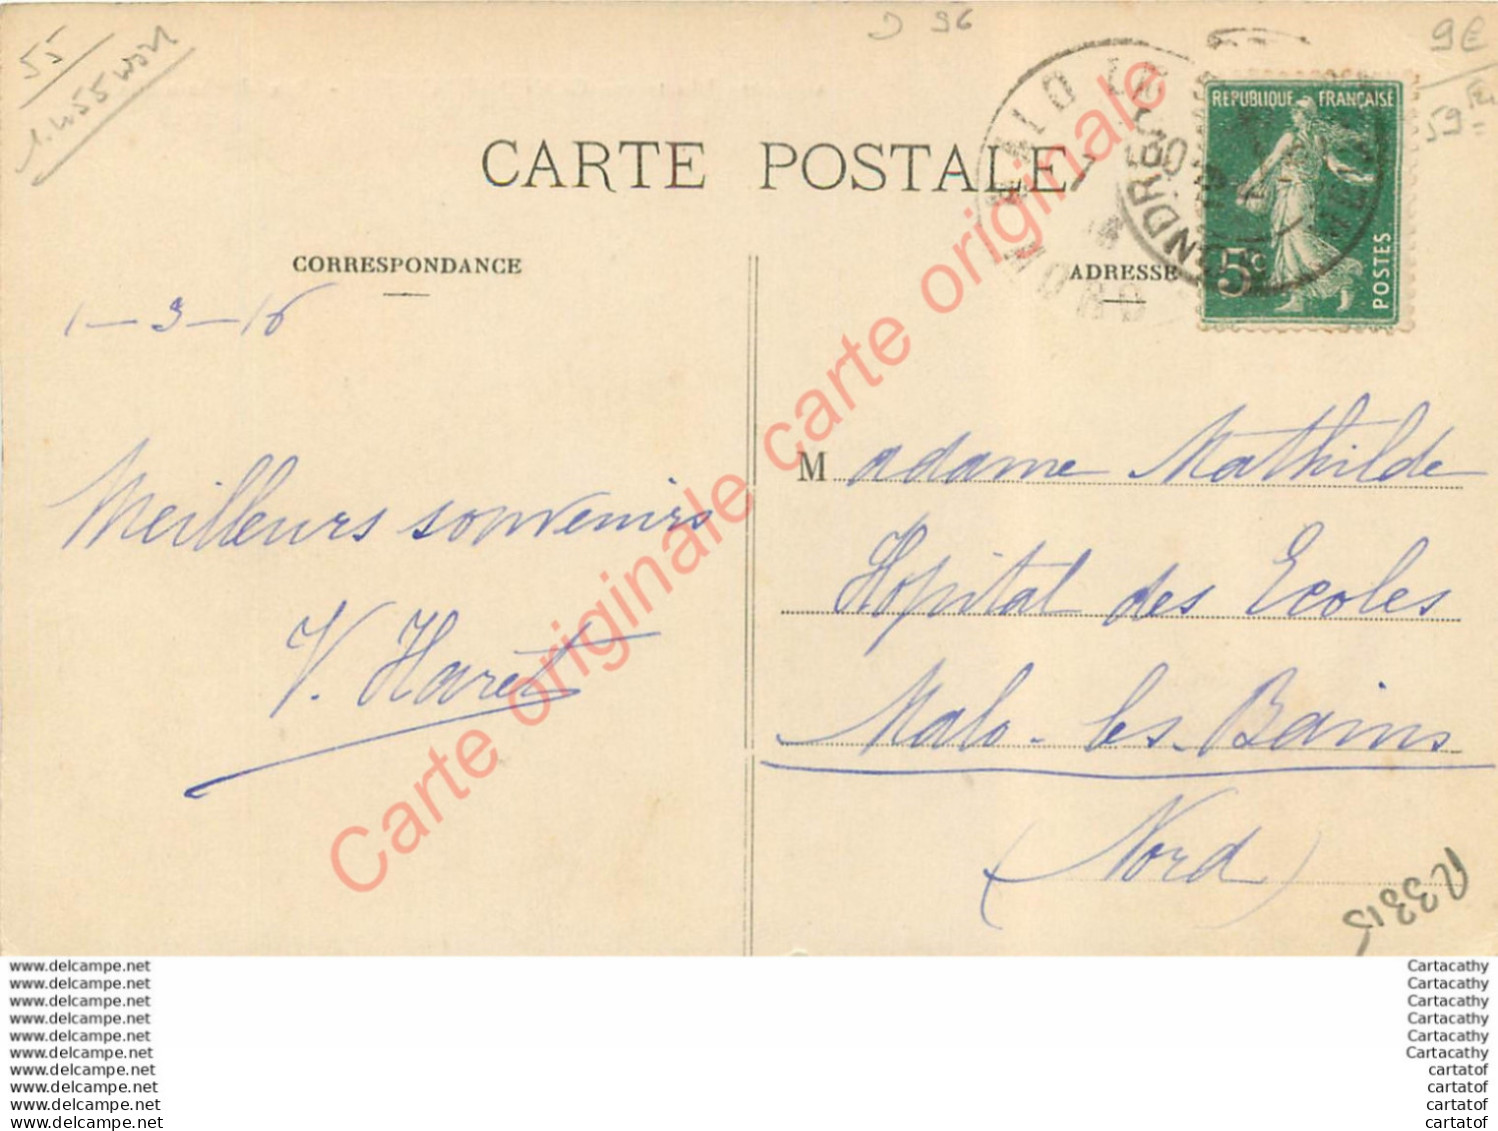 55
D 96
9€
59
CARTE POSTALE
REPUBLIQUE FRANÇAISE
5c
POSTES
MALO LES
NORD
CORRESPONDANCE
ADRESSE
1-3-16
Meilleurs souvenirs
V. Haret
Madame Mathilde
Hopital des Ecoles
Malo-les-Bains
(Nord)
R3315
Carte originale carte originale
www.delcampe.net
www.delcampe.net
www.delcampe.net
www.delcampe.net
www.delcampe.net
www.delcampe.net
www.delcampe.net
www.delcampe.net
www.delcampe.net
www.delcampe.net
Cartacathy
Cartacathy
Cartacathy
Cartacathy
Cartacathy
Cartacathy
cartatof
cartatof
cartatof
cartatof